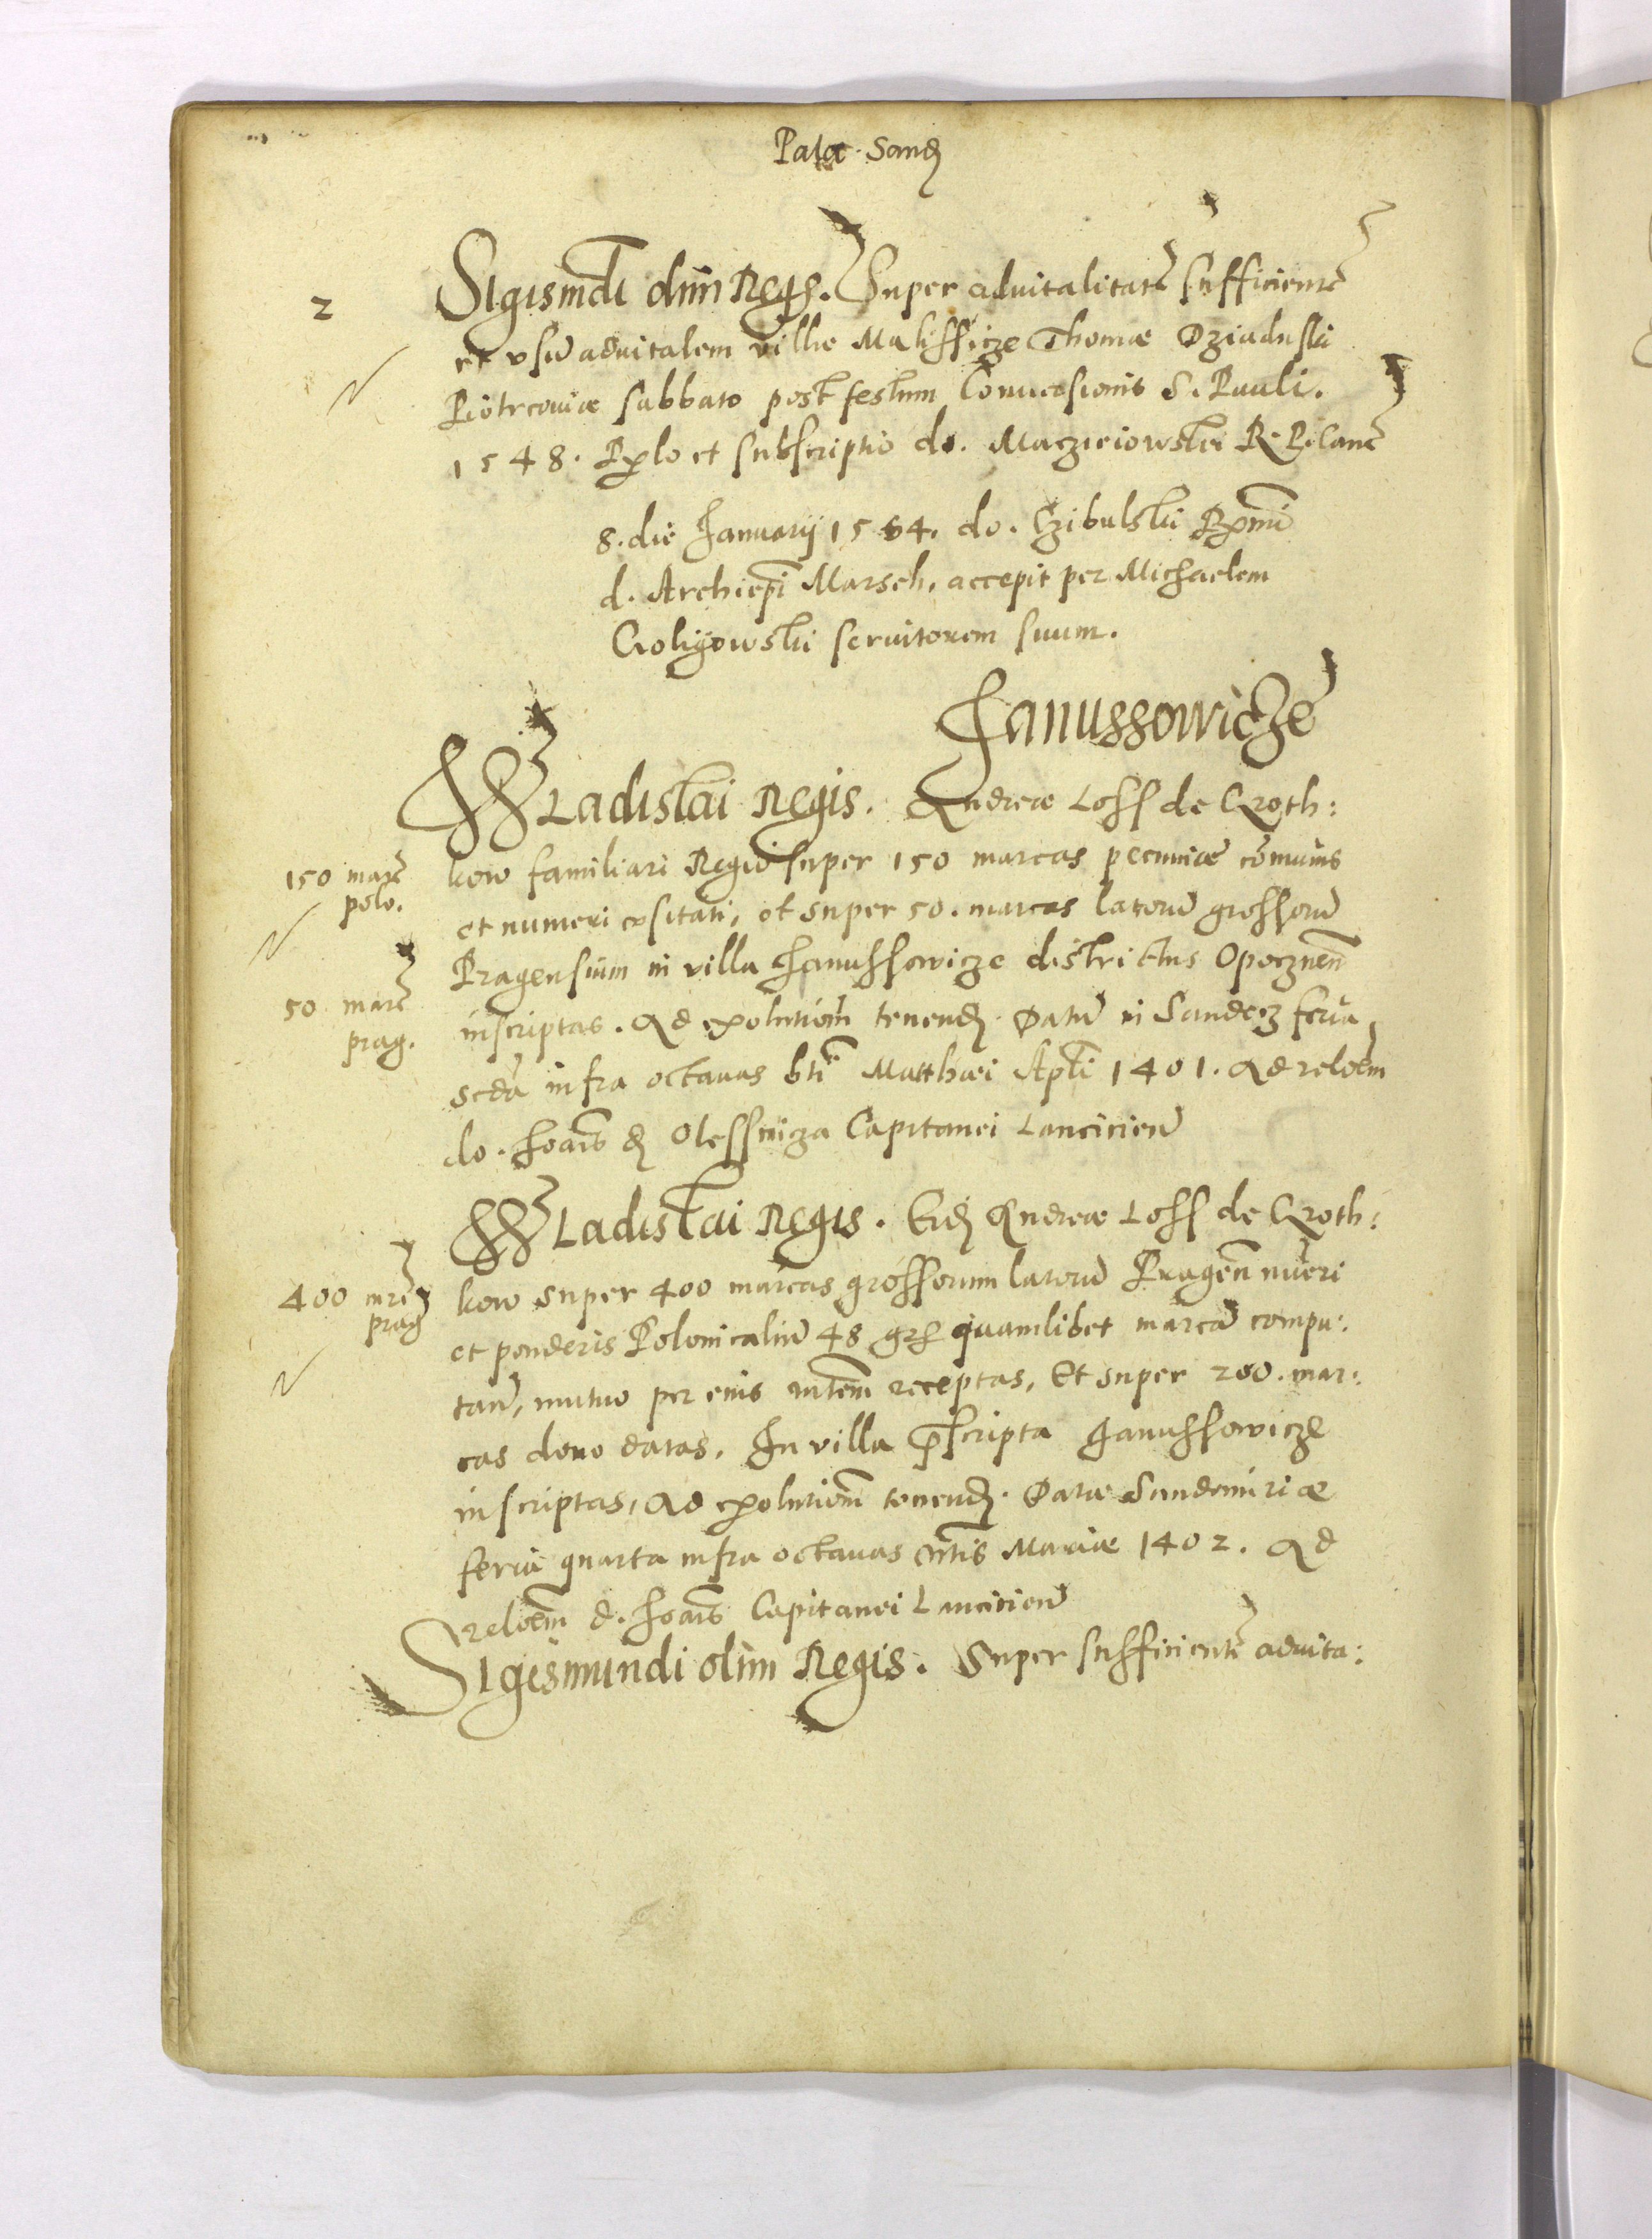 Pala. Sand
2
Sigismdi olim Regs. Super aduitalitatē sufficientē
et vsū aduitalem villae Malissicze Thomae Dziaduski
Piotrcouiae sabbato post festum Conuersionis S. Pauli.
1548. Pplo et subscriptio do. Maczieiowski R. P. Canc
8. die Januarij 1564. do. Czibulski Rpmi
d. Archiepi Marsch. accepit per Michaelem
Goligowski seruitorem suum.
Janussowicze
Wladislai Regis. Andreae Loss de Croth:
150 marc
polo.
kow familiari Regio super 150 marcas pecuniae cōmunis
et numeri vsitati, et super 50. marcas latorū grossorū
Pragensium in villa Janussowicze districtus Opocznen
50 marc
prag.
inscriptas. Ad exolutionem tenend. Datū in Sandecz feria
scda infra octauas bti Matthaei Apli 1401. Ad reloem
do. Joanis d Olessnicza Capitanei Lancicien
Wladislai Regis. Eid Andreae Loss de Croth:
400 mrc
prag
kow super 400 marcas grossorum latorū Pragen nūeri
et ponderis Polonicaliū 48 grs quamlibet marcā compu:
tan, mutuo per eius intem receptas, Et super 200. mar:
cas dono datas, In villa pscripta Janussowicze
inscriptas, Ad exolutionem tenend. Datae Sandomiriae
feria quarta infra octauas Ntis Mariae 1402. Ad
reloem d. Joanis Capitanei Lancicien
Sigismundi olim Regis. Super sufficientē aduita: